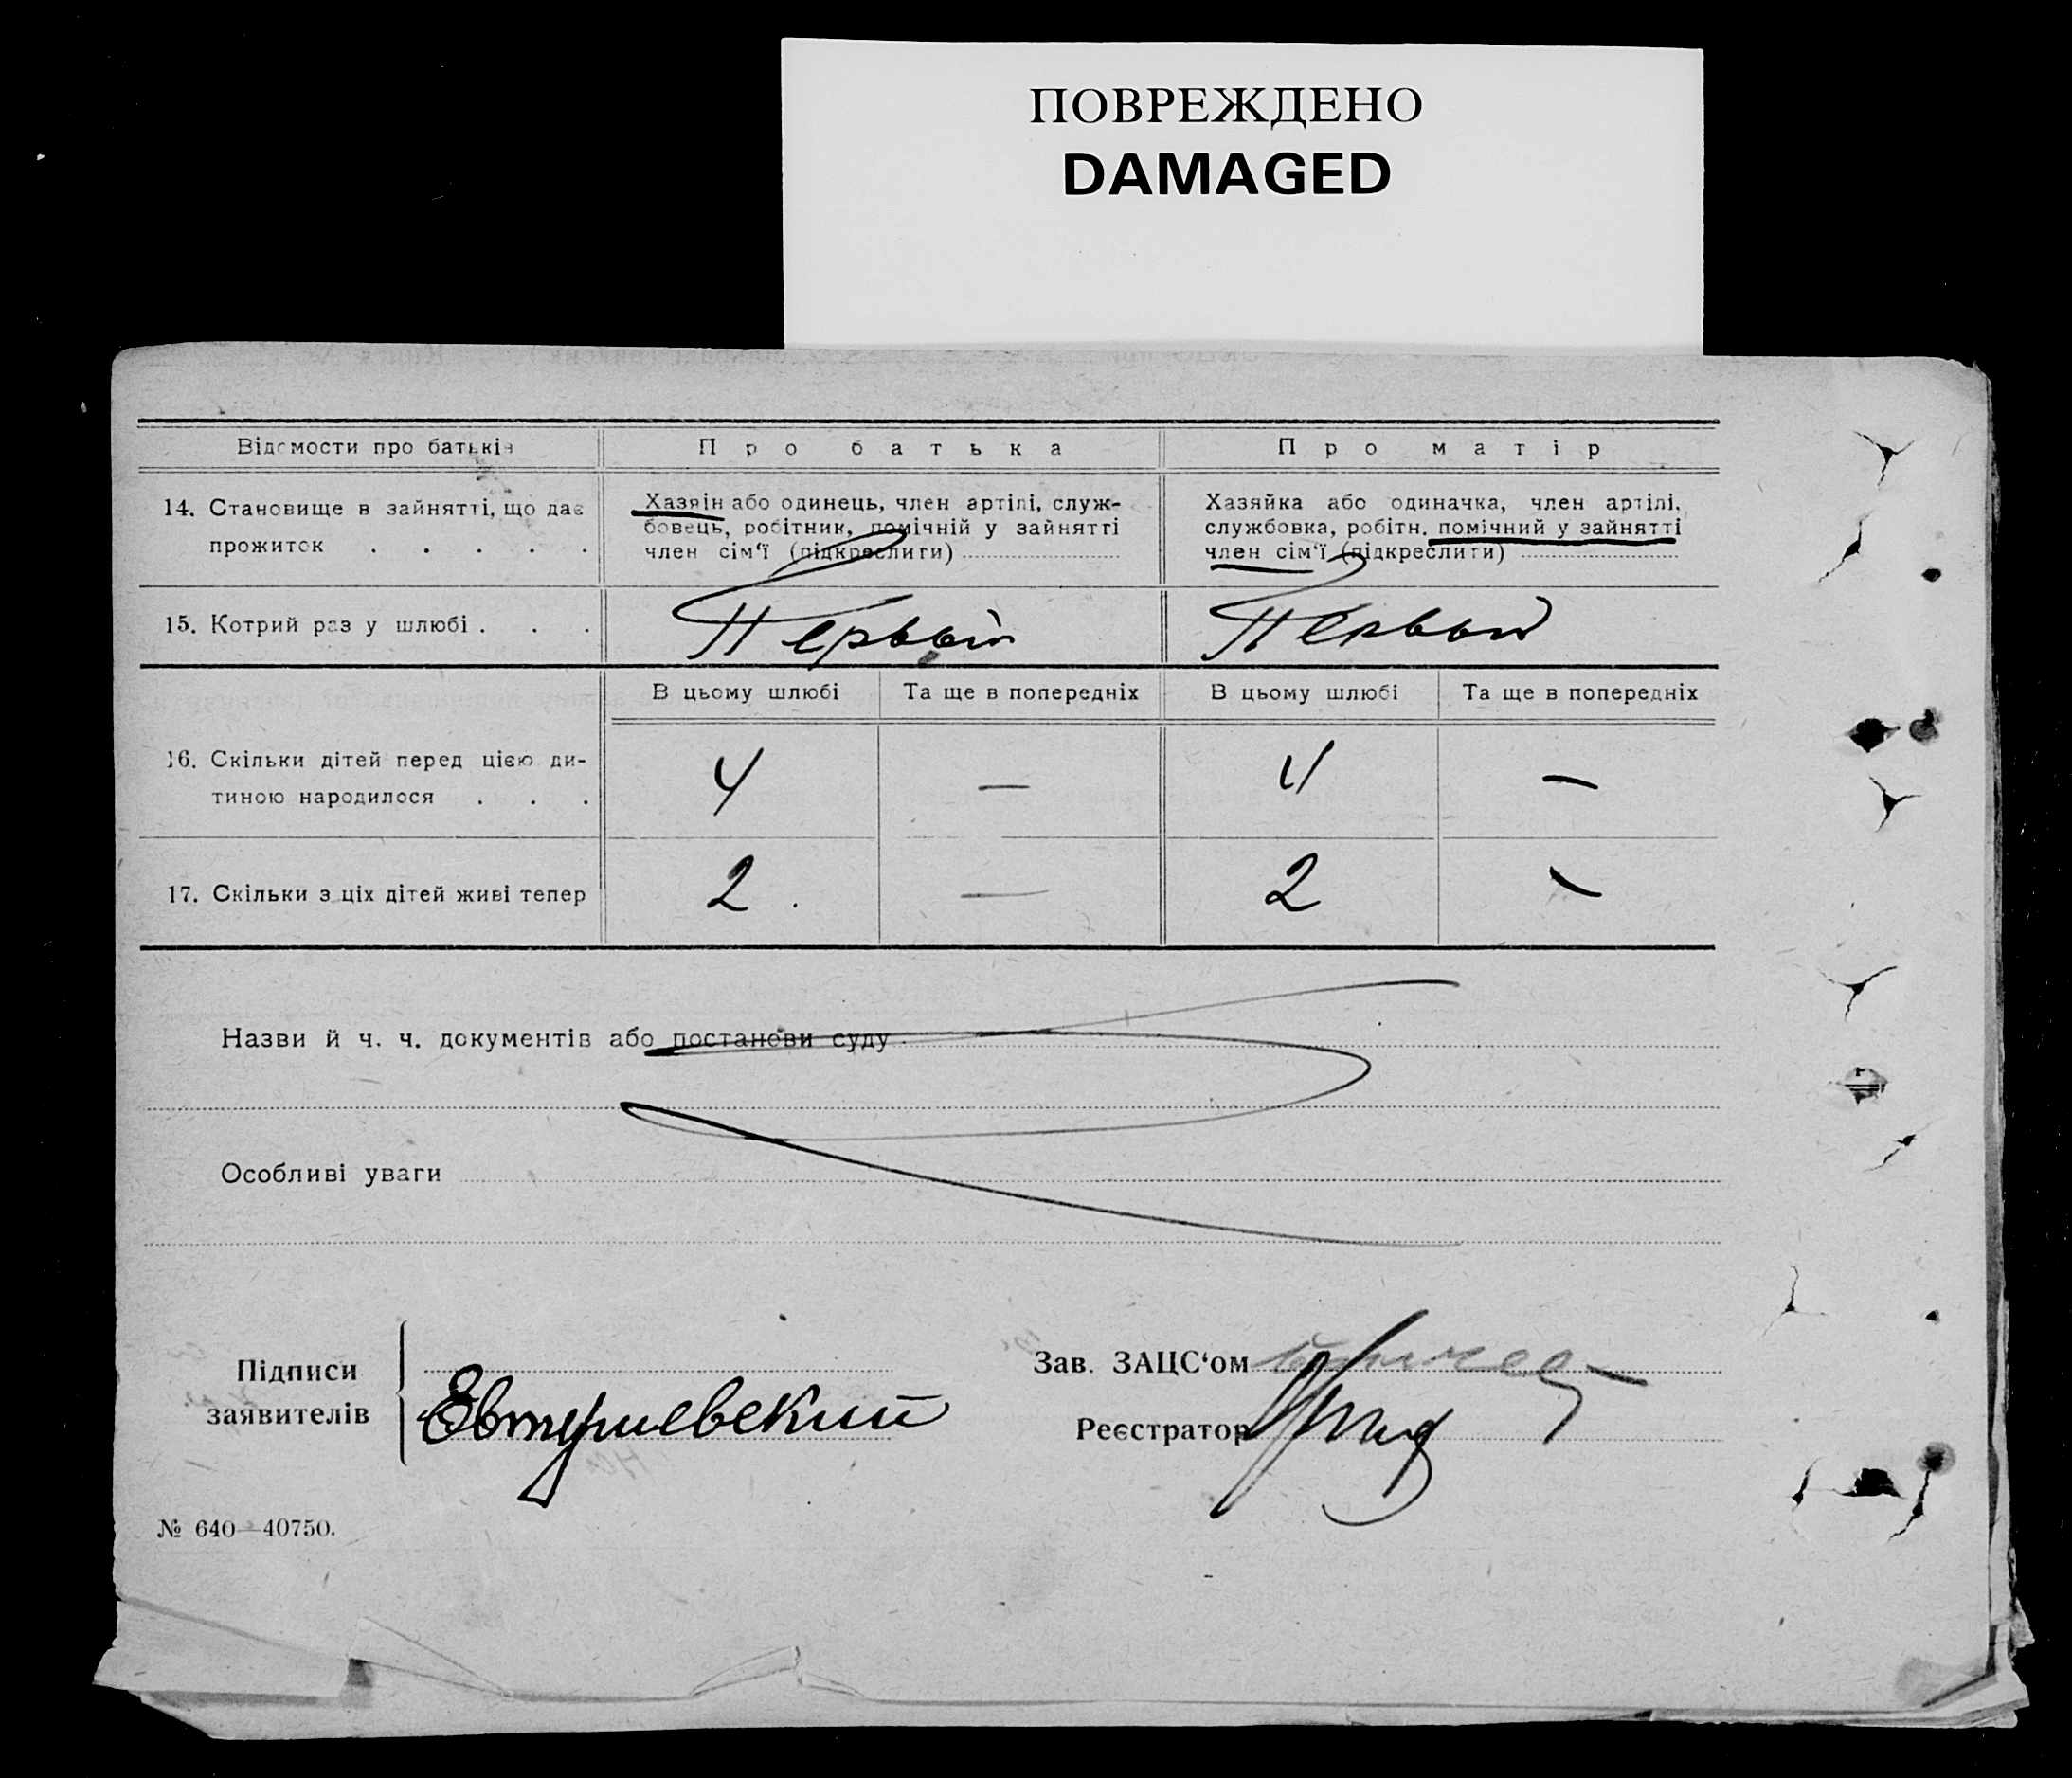 ПОВРЕЖДЕНО
DAMAGED
Відомости про батьків
Про батька
Про матір
14. Становище в зайнятті, що дає
прожиток . . . . .
Хазяїн або одинець, член артілі, служ-
бовець, робітник, помічній у зайнятті
член сім‘ї (підкреслити)
Хазяйка або одиначка, член артілі,
службовка, робітн. помічний у зайнятті
член сім‘ї (підкреслити)
15. Котрий раз у шлюбі . . .
Первый
Первый
В цьому шлюбі
Та ще в попередніх
В цьому шлюбі
Та ще в попередніх
16. Скільки дітей перед цією ди-
тиною народилося . . .
4
—
4
—
17. Скільки з ціх дітей живі тепер
2
—
2
—
Назви й ч. ч. документів або постанови суду
Особливі уваги
Підписи
заявителів
Евтушевский
Зав. ЗАЦС‘ом
Реєстратор
№ 640—40750.